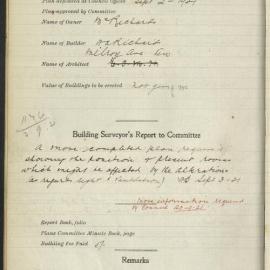 Plan deposited at Council Office Sept 2 - 1921
Plan approved by Committee
Name of Owner Mc Richards
Name of Builder
Milroy Ave
Name of Architect
Value of Buildings to be erected not given
Building Surveyor's Report to Committee
A more completed plan required
showing the position of present rooms
which might be affected by the alterations
as regards light & ventilation) Sept 3-21
More information required
by Council
Report Book, folio
Plans Committee Minute Book, page
Building Fee Paid
Remarks